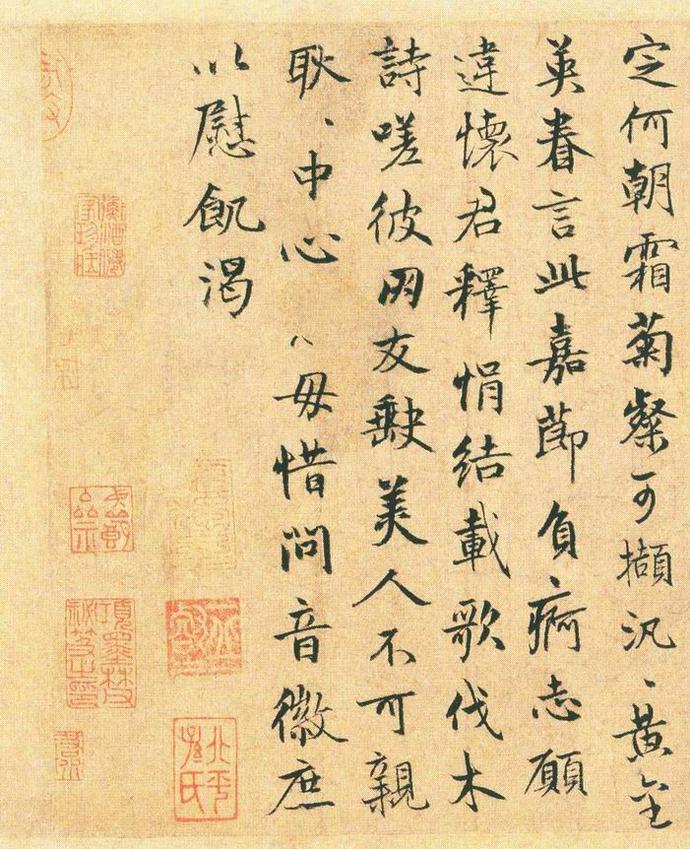 定何朝霜菊粲可擷汎〻黃金
英眷言此嘉節負痾志願
違懷君釋悁結載歌伐木
詩嗟彼朋友缺美人不可親
耿〻中心毋惜問音徽庶
以慰飢渴